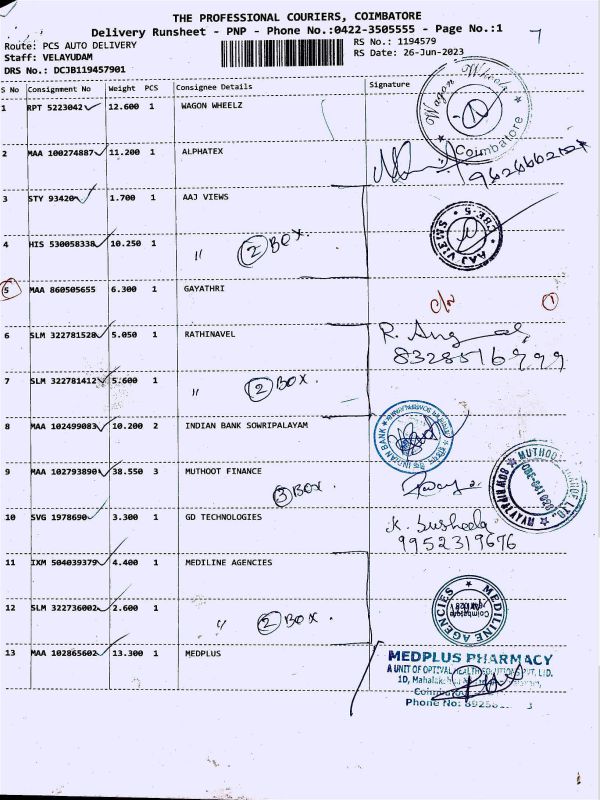 THE PROFESSIONAL COURIERS, COIMBATORE
Delivery Runsheet - PNP - Phone No.:0422-3505555 - Page No.:1
Route: PCS AUTO DELIVERY RS No.: 1194579
Staff: VELAYUDAM RS Date: 26-Jun-2023
DRS No.: DCJB119457901
S No Consignment No Weight PCS Consignee Details Signature
1 RPT 5223042 12.600 1 WAGON WHEELZ
Wagon Wheelz Coimbatore
2 MAA 100274887 11.200 1 ALPHATEX
3 STY 93420 1.700 1 AAJ VIEWS
AAJ VIEWS CBE-5
4 HIS 530058338 10.250 1 " 2 BOX.
5 MAA 860505655 6.300 1 GAYATHRI 1
6 SLM 322781528 5.050 1 RATHINAVEL R.
7 SLM 322781412 5.600 1 " 2 BOX.
8 MAA 102499083 10.200 2 INDIAN BANK SOWRIPALAYAM
INDIAN BANK
9 MAA 102793890 38.550 3 MUTHOOT FINANCE
3 BOX.
10 SVG 1978690 3.300 1 GD TECHNOLOGIES K. Susheela
9952319676
11 IXM 504039379 4.400 1 MEDILINE AGENCIES
MEDILINE AGENCIES Coimbatore
12 SLM 322736002 2.600 1 " 2 BOX.
13 MAA 102865602 13.300 1 MEDPLUS
MEDPLUS PHARMACY
A UNIT OF OPTIVAL HEALTH SOLUTIONS PVT. LTD.
Phone No: